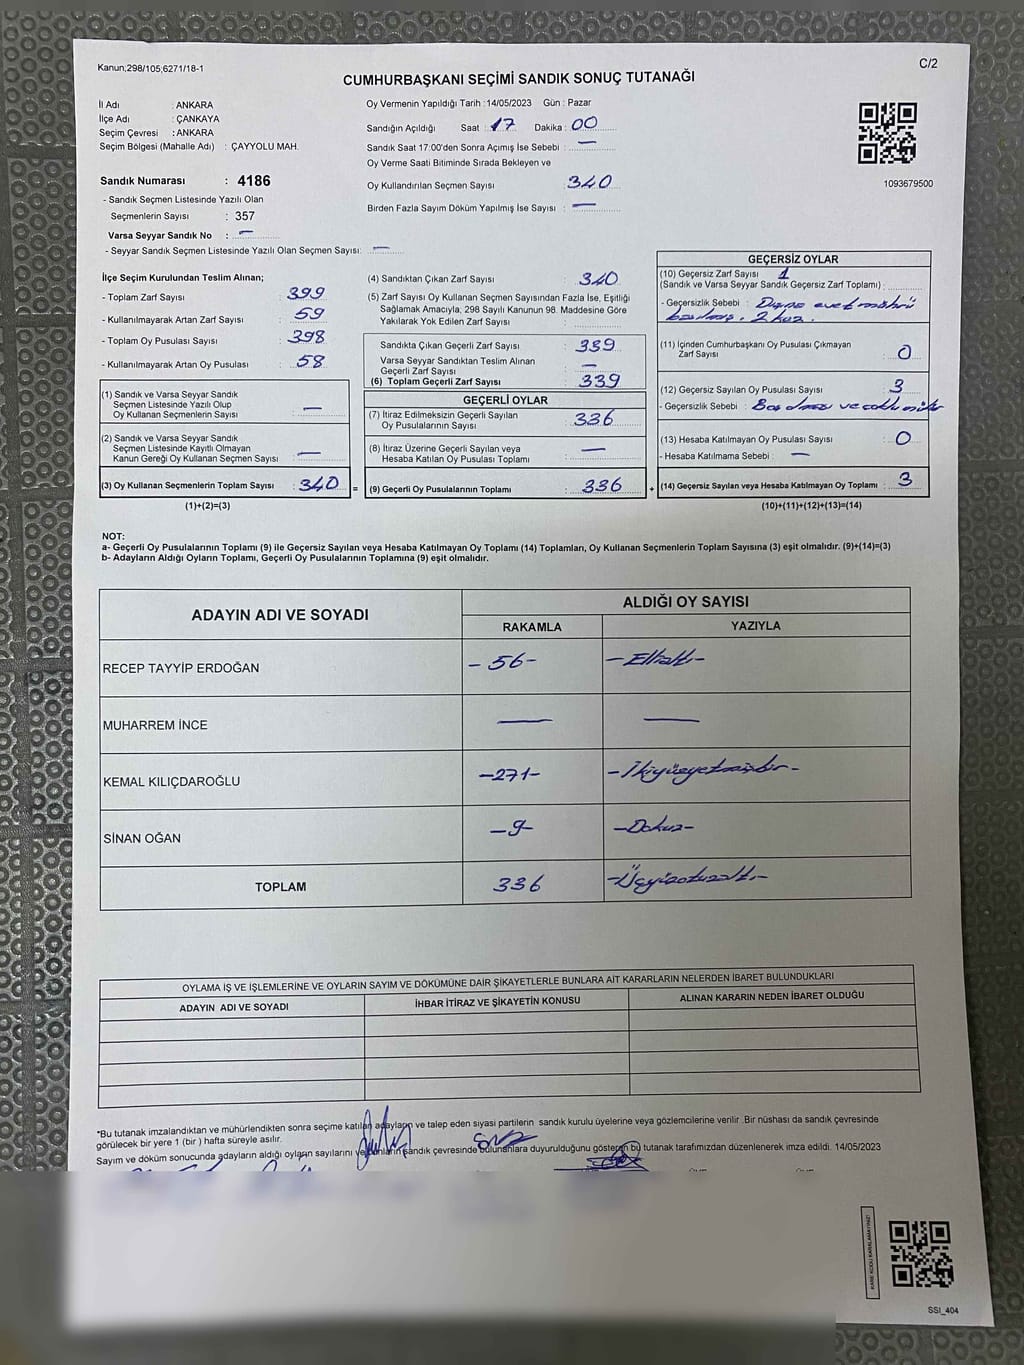 Kanun;298/105;6271/18-1
C/2
CUMHURBAŞKANI SEÇİMİ SANDIK SONUÇ TUTANAĞI
İl Adı : ANKARA
İlçe Adı : ÇANKAYA
Seçim Çevresi : ANKARA
Seçim Bölgesi (Mahalle Adı) : ÇAYYOLU MAH.
Sandık Numarası : 4186
- Sandık Seçmen Listesinde Yazılı Olan
Seçmenlerin Sayısı : 357
Varsa Seyyar Sandık No : —
- Seyyar Sandık Seçmen Listesinde Yazılı Olan Seçmen Sayısı: —
Oy Vermenin Yapıldığı Tarih :14/05/2023 Gün : Pazar
Sandığın Açıldığı Saat : 17 Dakika : 00
Sandık Saat 17:00'den Sonra Açımış İse Sebebi : —
Oy Verme Saati Bitiminde Sırada Bekleyen ve
Oy Kullandırılan Seçmen Sayısı 340
Birden Fazla Sayım Döküm Yapılmış İse Sayısı : —
1093679500
İlçe Seçim Kurulundan Teslim Alınan;
- Toplam Zarf Sayısı : 399
- Kullanılmayarak Artan Zarf Sayısı : 59
- Toplam Oy Pusulası Sayısı : 398
- Kullanılmayarak Artan Oy Pusulası : 58
(1) Sandık ve Varsa Seyyar Sandık
Seçmen Listesinde Yazılı Olup
Oy Kullanan Seçmenlerin Sayısı : —
(2) Sandık ve Varsa Seyyar Sandık
Seçmen Listesinde Kayıtlı Olmayan
Kanun Gereği Oy Kullanan Seçmen Sayısı : —
(3) Oy Kullanan Seçmenlerin Toplam Sayısı : 340 =
(1)+(2)=(3)
(4) Sandıktan Çıkan Zarf Sayısı : 340
(5) Zarf Sayısı Oy Kullanan Seçmen Sayısından Fazla İse, Eşitliği
Sağlamak Amacıyla; 298 Sayılı Kanunun 98. Maddesine Göre
Yakılarak Yok Edilen Zarf Sayısı :
Sandıkta Çıkan Geçerli Zarf Sayısı : 339
Varsa Seyyar Sandıktan Teslim Alınan
Geçerli Zarf Sayısı : —
(6) Toplam Geçerli Zarf Sayısı : 339
GEÇERLİ OYLAR
(7) İtiraz Edilmeksizin Geçerli Sayılan
Oy Pusulalarının Sayısı : 336
(8) İtiraz Üzerine Geçerli Sayılan veya
Hesaba Katılan Oy Pusulası Toplamı : —
(9) Geçerli Oy Pusulalarının Toplamı : 336 +
GEÇERSİZ OYLAR
(10) Geçersiz Zarf Sayısı 1
(Sandık ve Varsa Seyyar Sandık Geçersiz Zarf Toplamı) :
- Geçersizlik Sebebi : evet mührü
(11) İçinden Cumhurbaşkanı Oy Pusulası Çıkmayan
Zarf Sayısı : 0
(12) Geçersiz Sayılan Oy Pusulası Sayısı : 3
- Geçersizlik Sebebi :
(13) Hesaba Katılmayan Oy Pusulası Sayısı : 0
- Hesaba Katılmama Sebebi : —
(14) Geçersiz Sayılan veya Hesaba Katılmayan Oy Toplamı : 3
(10)+(11)+(12)+(13)=(14)
NOT:
a- Geçerli Oy Pusulalarının Toplamı (9) ile Geçersiz Sayılan veya Hesaba Katılmayan Oy Toplamı (14) Toplamları, Oy Kullanan Seçmenlerin Toplam Sayısına (3) eşit olmalıdır. (9)+(14)=(3)
b- Adayların Aldığı Oyların Toplamı, Geçerli Oy Pusulalarının Toplamına (9) eşit olmalıdır.
ADAYIN ADI VE SOYADI
ALDIĞI OY SAYISI
RAKAMLA YAZIYLA
RECEP TAYYİP ERDOĞAN -56- -Ellialtı-
MUHARREM İNCE — —
KEMAL KILIÇDAROĞLU -271- -İkiyüzyetmişbir-
SİNAN OĞAN -9- -Dokuz-
TOPLAM 336 -Üçyüzotuzaltı-
OYLAMA İŞ VE İŞLEMLERİNE VE OYLARIN SAYIM VE DÖKÜMÜNE DAİR ŞİKAYETLERLE BUNLARA AİT KARARLARIN NELERDEN İBARET BULUNDUKLARI
ADAYIN ADI VE SOYADI İHBAR İTİRAZ VE ŞİKAYETİN KONUSU ALINAN KARARIN NEDEN İBARET OLDUĞU
*Bu tutanak imzalandıktan ve mühürlendikten sonra seçime katılan adayların ve talep eden siyasi partilerin sandık kurulu üyelerine veya gözlemcilerine verilir .Bir nüshası da sandık çevresinde
görülecek bir yere 1 (bir ) hafta süreyle asılır.
Sayım ve döküm sonucunda adayların aldığı oyların sayılarını ve bunların sandık çevresinde bulunanlara duyurulduğunu gösteren bu tutanak tarafımızdan düzenlenerek imza edildi. 14/05/2023
KARE KODU KARALAMAYINIZ!
SSI_404